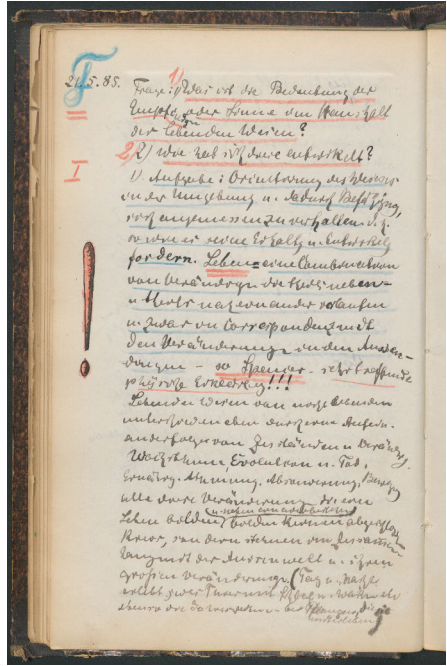 21.5.85. Frage: 1) Was ist die Bedeutung der
oder Sinne im Haushalt
der lebenden Wesen?
2) Wie hat sich diese entwickelt?
1) Aufgabe: Orientirung des Wesens
in der Umgebung u. dadurch Befähigung,
sich angemessen zu verhalten d. h.
wie es seine Erhaltg u. Entwicklg
fordern. Leben = eine Combination
von Veränderungen die theils neben-
u. theils nacheinander verlaufen
u. zwar in Correspondenz mit
den Veränderungen in den Aussen-
dingen – so Spencer – sehr treffende
Erklärung!!!
Lebende Wesen von nicht lebenden
unterscheiden eben durch eine Aufein-
anderfolge von Zuständen u. Verändrg.
Wachsthum, Evolution u. Tod,
Ernährg. Athmung, Absonderung, Bewegg
alle diese Veränderungen die ein
Leben bilden, bilden keinen abgeschloss.
Kreis, sondern stehen im Zusammen-
hang mit der Aussenwelt u. ihren
grossen Veränderungen (Tag u. Nacht
Schlaf u. Wachen
ebenso die